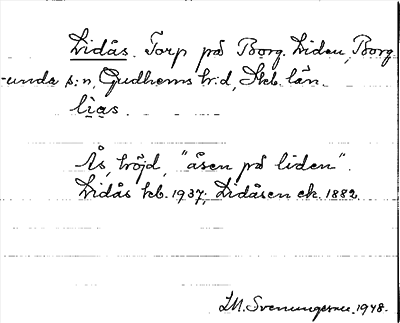 Lidås. Torp på Borg. Liden, Borg
-unda s:n, Gudhems h:d, Skb. län.
lias.
Ås, höjd, "åsen på liden".
Lidås kb. 1937; Lidåsen ek. 1882.
1948.